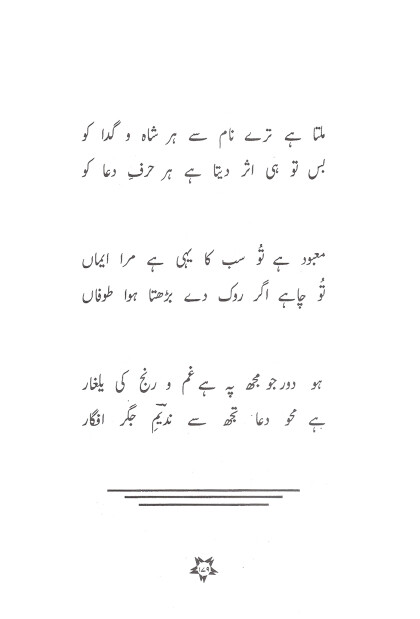 ملتا ہے ترے نام سے ہر شاہ و گدا کو
بس تو ہی اثر دیتا ہے ہر حرفِ دعا کو
معبود ہے تُو سب کا یہی ہے مرا ایماں
تُو چاہے اگر روک دے بڑھتا ہوا طوفاں
ہو دور جو مجھ پہ ہے غم و رنج کی یلغار
ہے محو دعا تجھ سے ندیمِؔ جگر افگار
۱۷۹